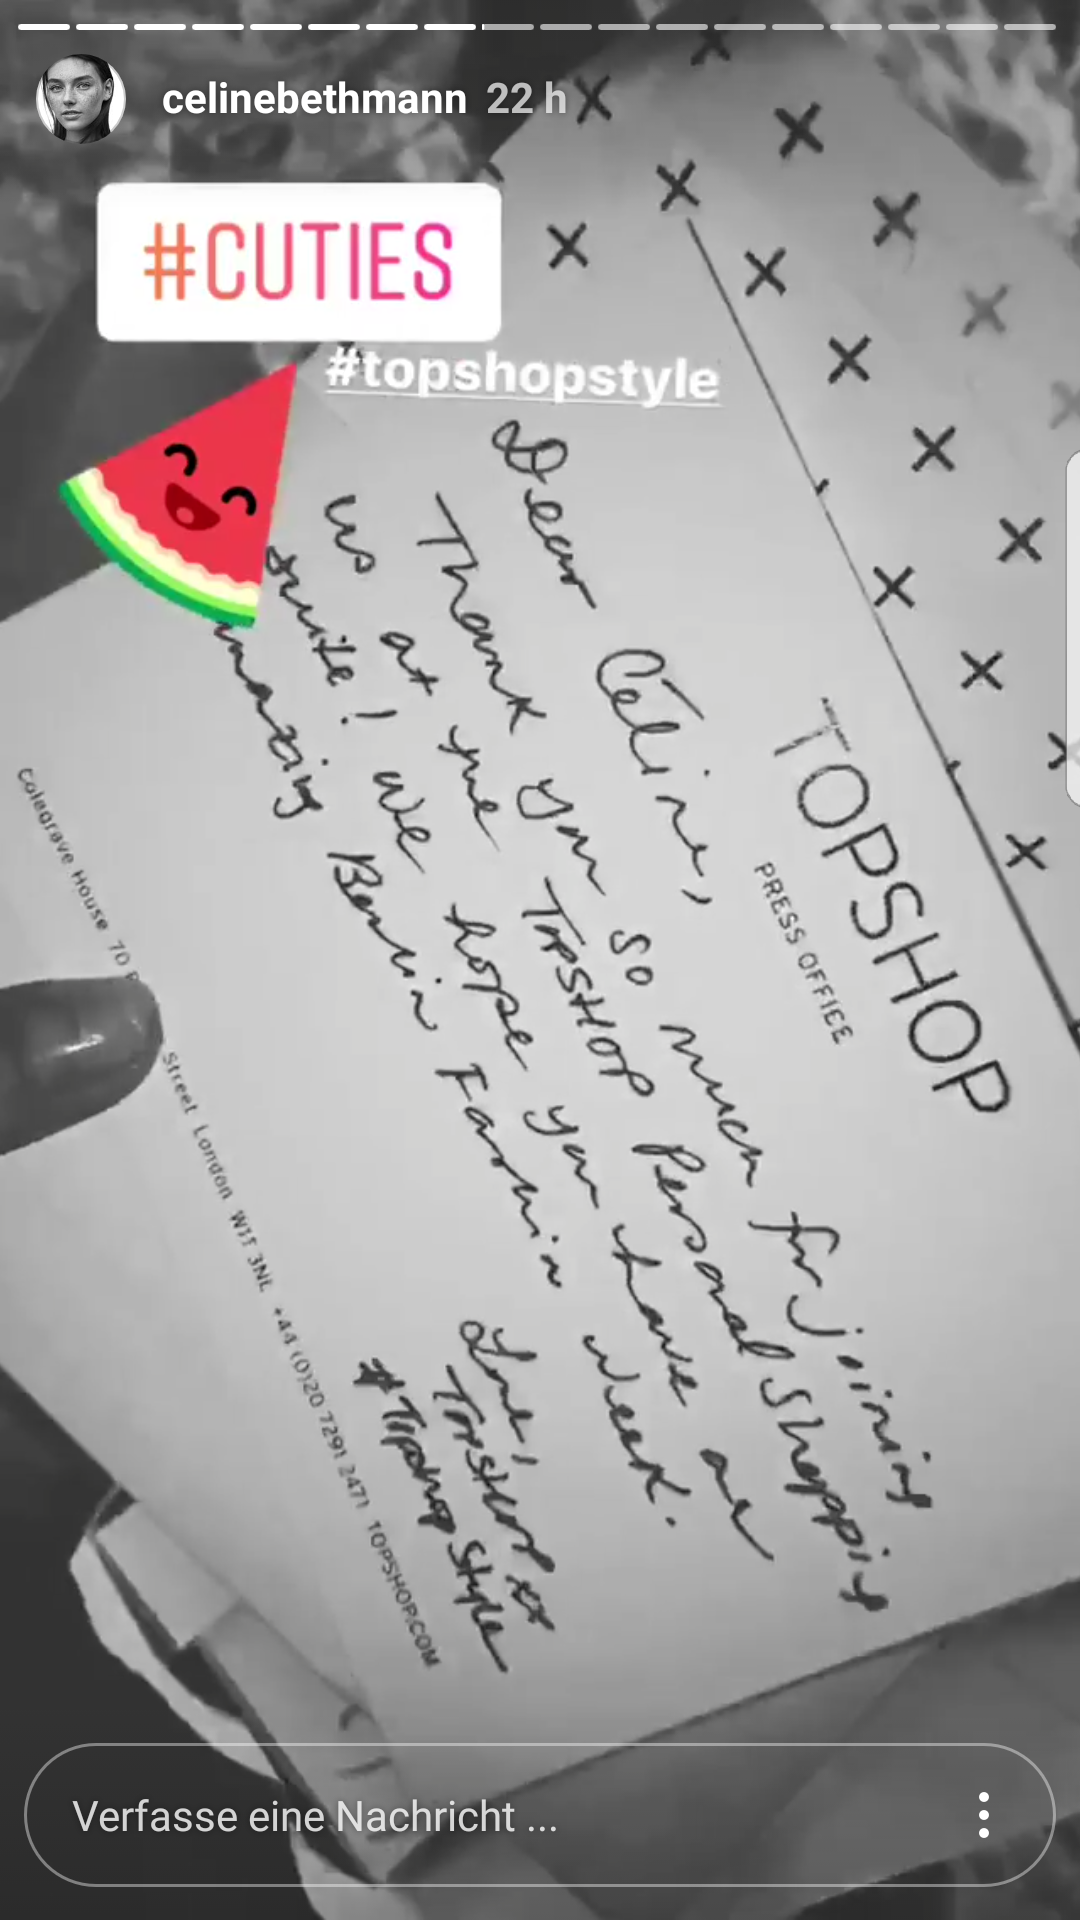 celinebethmann 22 h
#CUTIES
#topshopstyle
TOPSHOP
PRESS OFFICE
Dear Celine,
Thank you so much for joining
us at the TOPSHOP Personal Shopping
suite! We hope you have an
amazing Berlin Fashion Week.
Love,
TOPSHOP xx
#TopshopStyle
Colegrave House 70 Street London W1T 3NL +44 (0)20 7291 2471 TOPSHOP.COM
Verfasse eine Nachricht ...